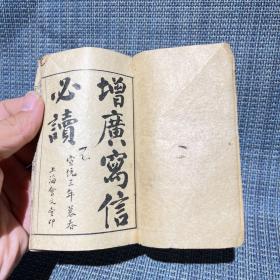 增廣寫信
必讀
宣統三年暮春
上海會文堂印